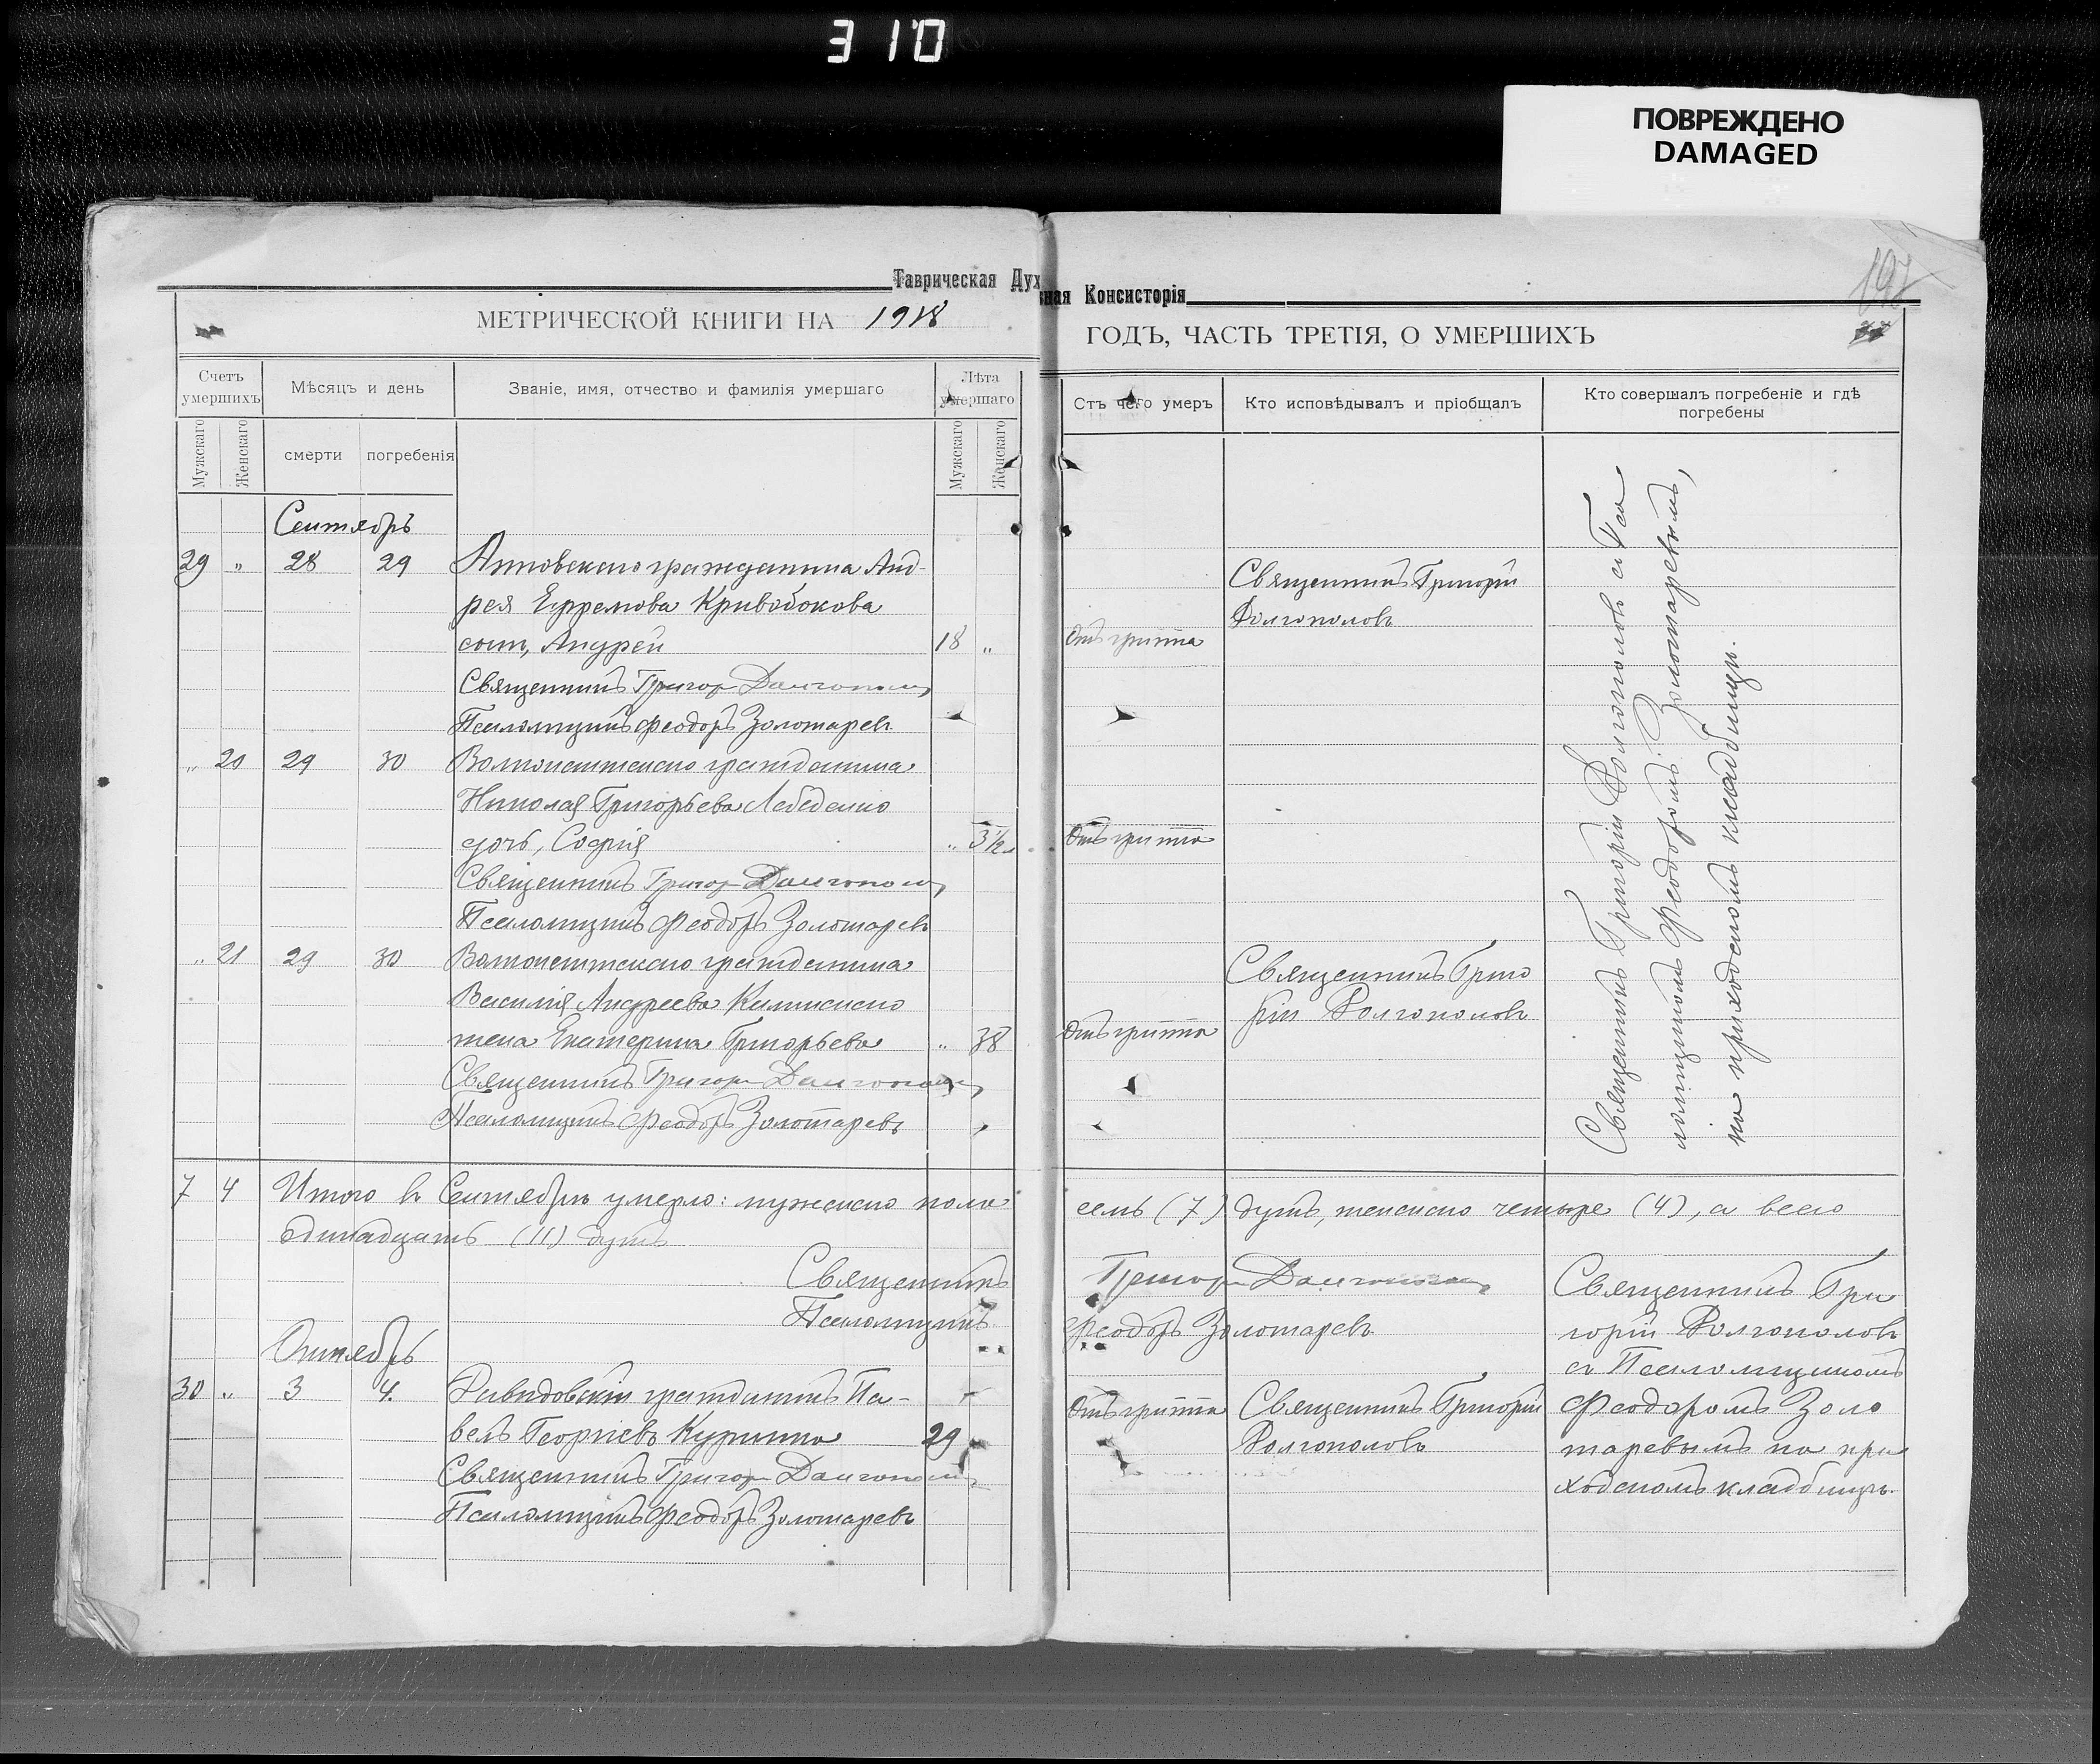 310
ПОВРЕЖДЕНО
DAMAGED
Таврическая Дух
ная Консисторія
197
МЕТРИЧЕСКОЙ КНИГИ НА 1918
ГОДЪ, ЧАСТЬ ТРЕТІЯ, О УМЕРШИХЪ
Счетъ умершихъ
Мѣсяцъ и день
Званіе, имя, отчество и фамилія умершаго
Лѣта умершаго
Мужскаго
Женскаго
смерти
погребенія
Мужскаго
Женскаго
Сентябрь
29 „ 28 29 гражданина Анд-
рея Ефремова Кривобокова
сынъ, Андрей 18 „
Священникъ Григор Долгополов
Псаломщикъ Феодоръ Золотаревъ
„ 20 29 30 гражданина
Николая Григорьева Лебеденко
дочь, Софія „ 3½
Священникъ Григор Долгополов
Псаломщикъ Феодоръ Золотаревъ
„ 21 29 30 гражданина
Василія Андреева
жена Екатерина Григорьева „ 38
Священникъ Григор Долгополов
Псаломщикъ Феодоръ Золотаревъ
7 4 Итого въ Сентябрѣ умерло: мужского пола
одинадцать (11) душъ
Священникъ
Псаломщикъ
Октябрь
30 „ 3 4. Давидовскій гражданинъ Па-
велъ Георгіевъ 29
Священникъ Григор Долгополов
Псаломщикъ Феодоръ Золотаревъ
Отъ чего умеръ
Кто исповѣдывалъ и пріобщалъ
Кто совершалъ погребеніе и гдѣ
погребены
Священникъ Григорій
Долгополовъ
Отъ гриппа
Отъ гриппа
Священникъ Григо
рій Долгополовъ
Отъ гриппа
Священникъ Григорій Долгополовъ съ Пса
ломщикомъ Феодоромъ Золотаревымъ,
на приходскомъ кладбищѣ.
семь (7) душъ, женского четыре (4), а всего
Григор Долгополов
Феодоръ Золотаревъ
Отъ гриппа
Священникъ Григорій
Долгополовъ
Священникъ Гри
горій Долгополовъ
съ Псаломщикомъ
Феодоромъ Золо
таревымъ на при
ходскомъ кладбищѣ.